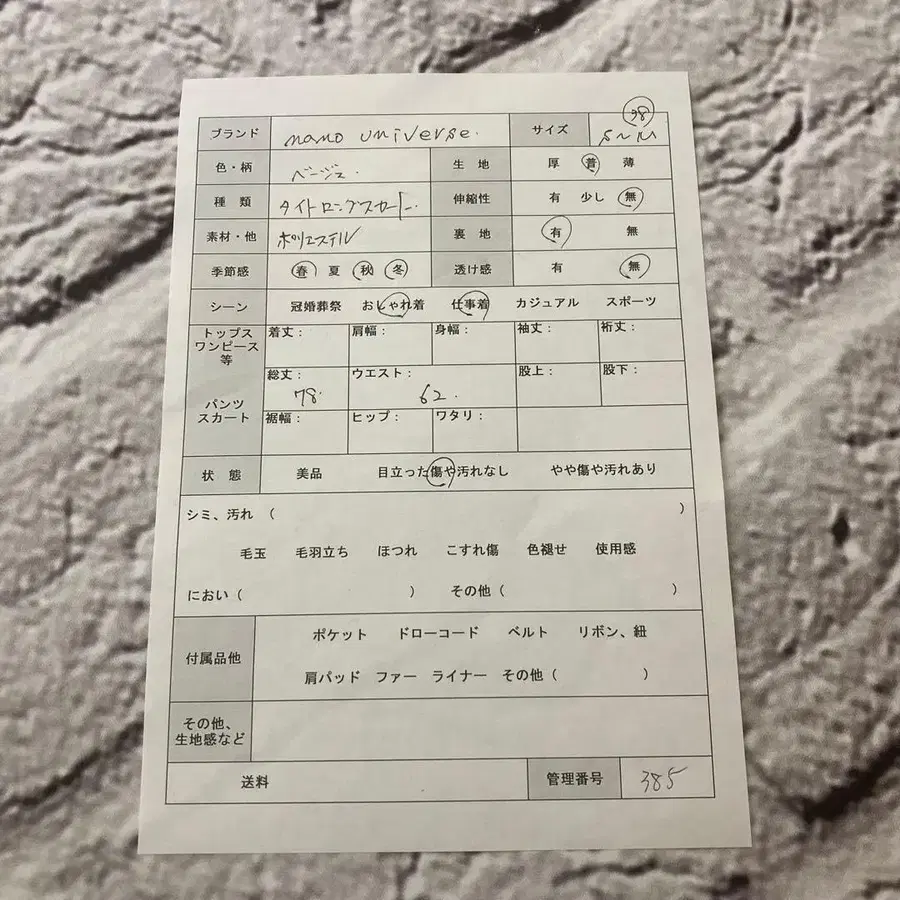 38
ブランド nano universe. サイズ S〜M
色・柄 ベージュ. 生 地 厚 普 薄
種 類 タイトロングスカート. 伸縮性 有 少し 無
素材・他 ポリエステル 裏 地 有 無
季節感 春 夏 秋 冬 透け感 有 無
シーン 冠婚葬祭 おしゃれ着 仕事着 カジュアル スポーツ
トップス 着丈： 肩幅： 身幅： 袖丈： 裄丈：
ワンピース
等
総丈： ウエスト： 股上： 股下：
78. 62.
パンツ
スカート
裾幅： ヒップ： ワタリ：
状 態 美品 目立った傷や汚れなし やや傷や汚れあり
シミ、汚れ （ ）
毛玉 毛羽立ち ほつれ こすれ傷 色褪せ 使用感
におい（ ） その他（ ）
ポケット ドローコード ベルト リボン、紐
付属品他
肩パッド ファー ライナー その他（ ）
その他、
生地感など
送料 管理番号 385